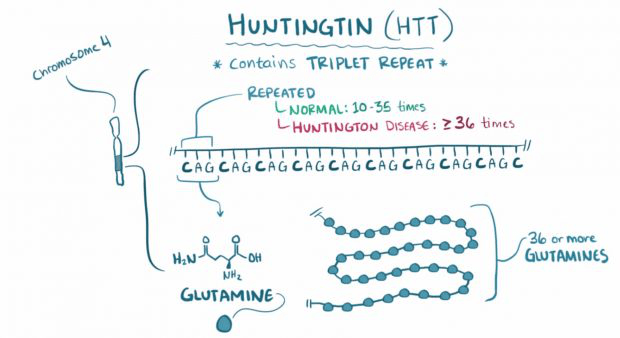 HUNTINGTIN (HTT)
Chromosome 4
* Contains TRIPLET REPEAT *
REPEATED
NORMAL: 10-35 times
HUNTINGTON DISEASE: ≥36 times
CAGCAGCAGCAGCAGCAGCAGCAGCAGC
36 or more
GLUTAMINES
H₂N
O
O
OH
NH₂
GLUTAMINE